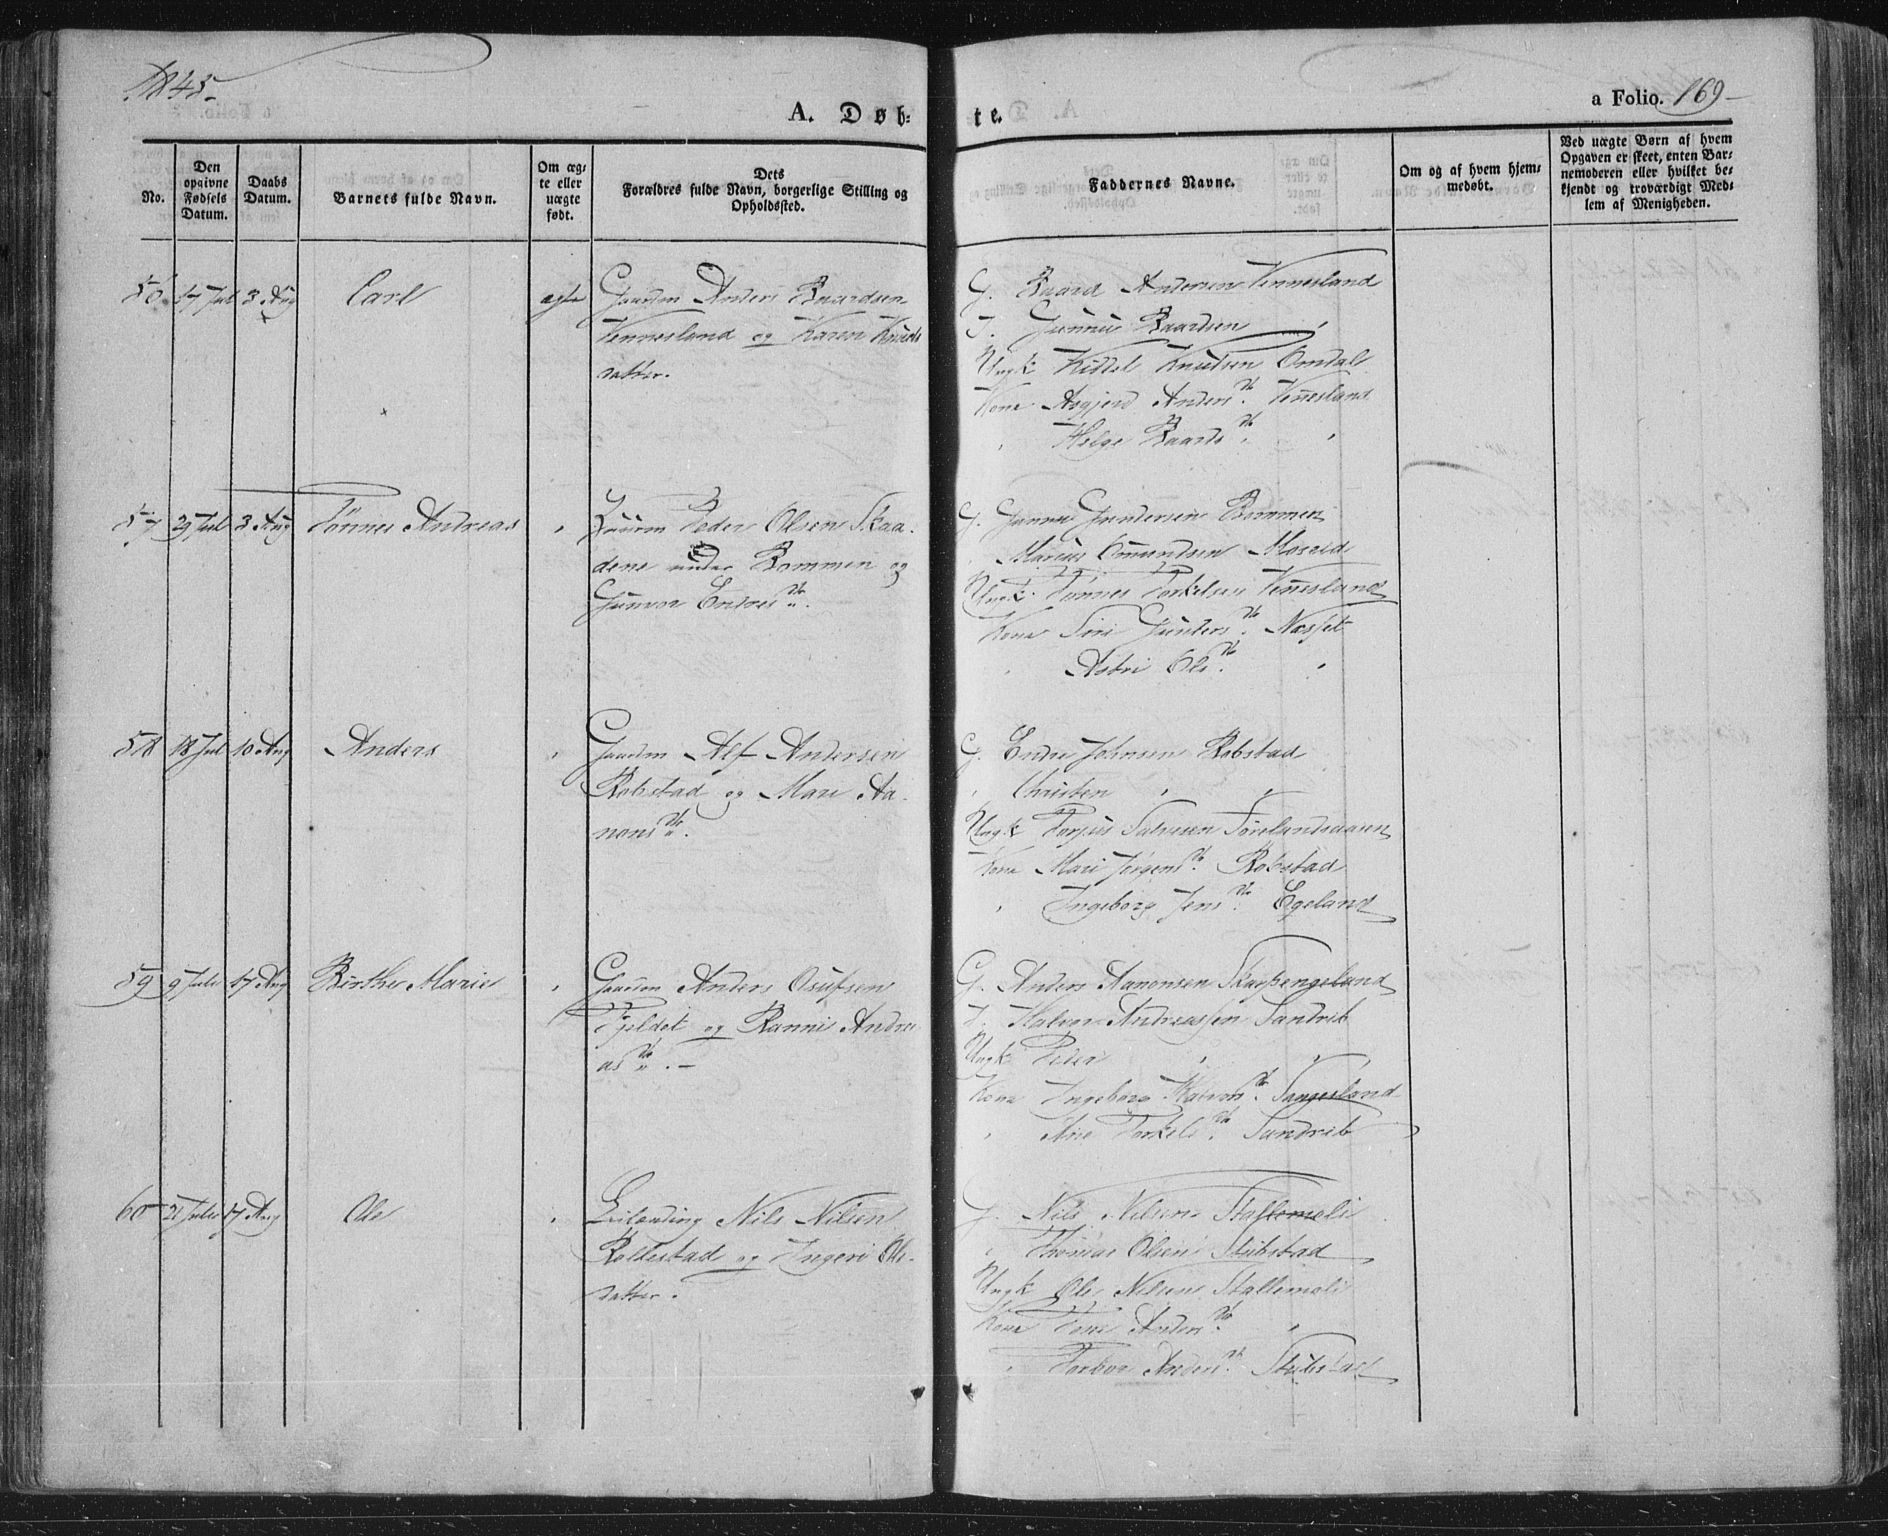 1845
A. Døb:
te.
a Folio. 169
No.
Den opgivne Fødsels Datum.
Daabs Datum.
Barnets fulde Navn.
Om ægte eller uægte født.
Dets
Forældres fulde Navn, borgerlige Stilling og
Opholdssted.
Faddernes Navne.
Om og af hvem hjemmedøbt.
Ved uægte Børn af hvem
Opgaven er skeet, enten Bar:
nemoderen eller hvilket be:
kjendt og troværdigt Med:
lem af Menigheden.
56 17 Jul 3 Aug Carl ægte Gaardm Anders Baardsen
Vennesland og Karen Knuds
datter.
G. Baard Andersen Vennesland
J. Gunnus Baardsen "
Ungk Kittel Knudsen Omdal
Kone Asgjerd Anders D. Vennesland
" Helge Baards D. "
57 29 Jul 3 Aug Tönnes Andreas "
Peder Olsen Skaa-
dene under Bommen og
Gunvor Endres D.
G. Gunnu Gundersen Bommen
" Marius Omundsen Moseid
Ungk. Tönnes Torkelsen Vennesland
Kone Siri Gunders D. Næsset
" Astri Ols D. "
58 18 Jul 10 Aug Anders " Gaardm Alf Andersen
Robstad og Mari Aa-
nons D.
G. Endre Johnsen Robstad
" Christen " "
Ungk Torjus Salvesen
Kone Mari Jörgens D. Robstad
" Ingeborg Jens D. Egeland
59 9 Juli 17 Aug Birthe Marie " Gaardm Anders Osufsen
Fjeldet og Ranni Andre-
as D. -
G. Anders Aanonsen Skarpengeland
J. Halvor Andreassen Sandrib
Ungk Peder " "
Kone Ingeborg Halvors D. Sangesland
" Ane Torkels D. Sandrib
60 21 Juli 17 Aug Ole " Leilænding Nils Nilsen
Rollestad og Ingeri Ols-
datter.
G. Nils Nilsen Stallemoli
" Thomas Olsen Stubstad
Ungk Ole Nilsen Stallemoli
Kone Tone Anders D. "
" Torbor Anders D. Stubstad